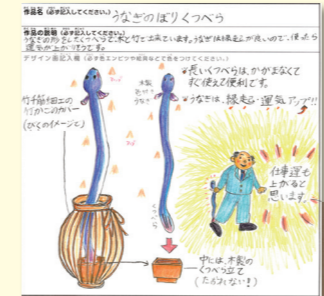 作品名(必ず記入してください。) うなぎのぼりくつべら
作品の説明(必ず記入してください。)
うなぎの形をしたくつべらで、木と竹で出来ています。うなぎは縁起が良いので、使ったら
運気が上がりそうです。
デザイン画記入欄(必ず色エンピツや絵具などで色をつけてください。)
竹千筋細工の
竹かごのカバー
(びくのイメージ)
木製
うなぎ
・長いくつべらは、かがまなくて
すぐ使えて便利です。
・うなぎは、縁起・運気アップ!!
仕事運も
上がると
思います。
中には、木製の
くつべら立て
(たおれない!)